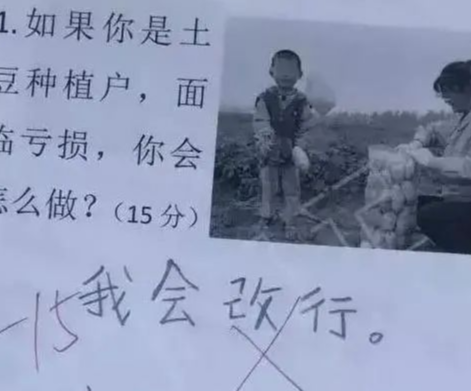 1.如果你是土
豆种植户，面
临亏损，你会
怎么做？（15 分）
-15
我会改行。